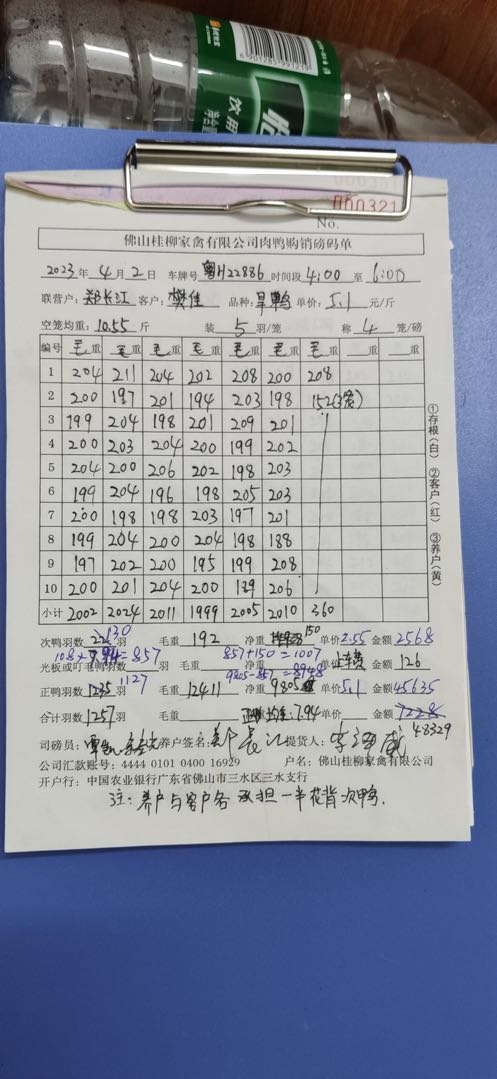 饮用
6901285991219
000321
No.
佛山桂柳家禽有限公司肉鸭购销磅码单
2023年4月2日 车牌号 粤H22886 时间段 4:00 至 6:00
联营户: 郑长江 客户: 樊佳 品种: 旱鸭 单价: 5.1 元/斤
空笼均重: 10.55 斤 装 5 羽/笼 称 4 笼/磅
编号 毛重 毛重 毛重 毛重 毛重 毛重 毛重 重 重
1 204 211 204 202 208 200 208
2 200 197 201 194 203 198 152(3笼)
3 199 204 198 201 209 201
4 200 203 204 200 199 202
5 204 200 206 202 198 203
6 199 204 196 198 205 203
7 200 198 198 203 197 201
8 199 204 200 204 198 188
9 197 202 200 195 199 208
10 200 201 204 200 189 206
小计 2002 2024 2011 1999 2005 2010 360
①存根(白) ②客户(红) ③养户(黄)
次鸭羽数 22 130 羽 毛重 192 净重 150 单价 2.55 金额 2568
108 × 7.94 = 857 857+150=1007
光板或叮毛鸭羽数 羽 毛重 净重 单价 金额 126
1127 9805-857=8948
正鸭羽数 1235 羽 毛重 12411 净重 9805 单价 5.1 金额 45635
合计羽数 1257 羽 毛重 正鸭均重: 7.94 单价 金额 7228
48329
司磅员: 养户签名: 郑长江 提货人:
公司汇款账号: 4444 0101 0400 16929 户名: 佛山桂柳家禽有限公司
开户行: 中国农业银行广东省佛山市三水区三水支行
注: 养户与客户各承担一半花背次鸭.